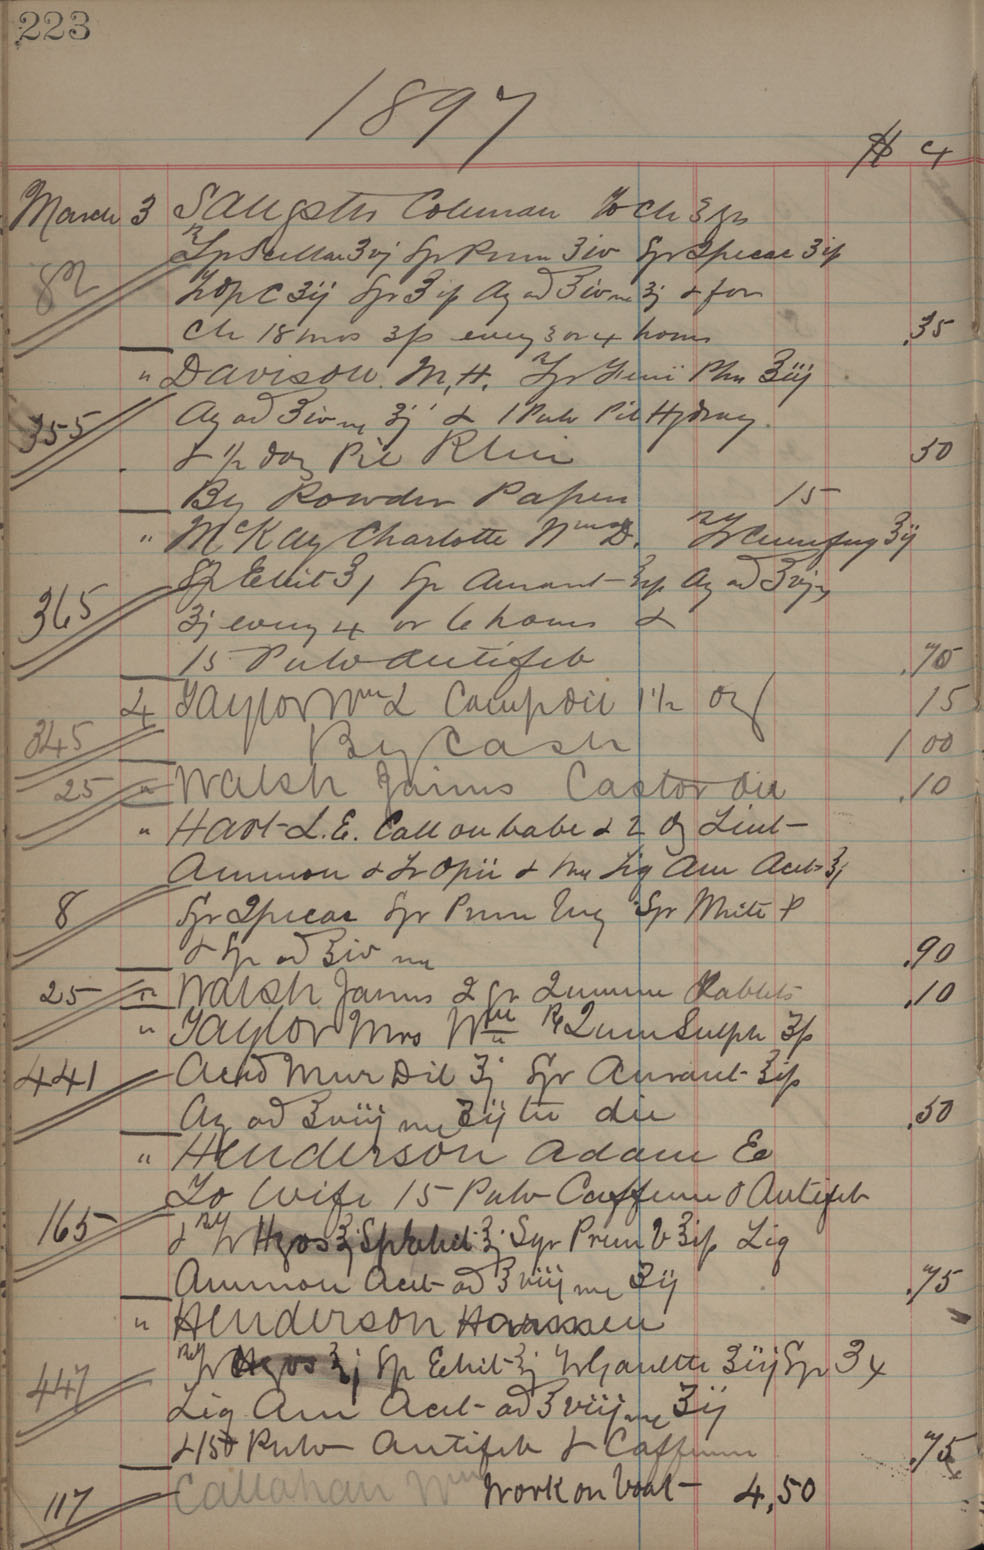 223
1897
$ c
March 3 Sangster Coleman To Ch 3 yrs
82 Syr Scillae ʒvj Syr Prun ʒiv Syr Ipecac ʒip
Opc ʒij Syr ʒip Aq ad ʒiv ʒj & for
Ch 18 mos ʒp every 3 or 4 hours .35
" Davison. M, H. ʒiij
355 Aq ad ʒiv ʒj & 1 Pulv Pil Hydrarg.
& ½ doz Pil Rhei 50
By Powder Papers 15
" McKay Charlotte Wm D. Tr Cimifug ʒij
365 Sp Ethit ʒj Syr Aurant ʒip Aq ad ʒvj
ʒj every 4 or 6 hours &
15 Pulv Antifeb .70
4 Taylor Wm L Camp Oil 1½ oz 15
345 By Cash 1 00
25 " Walsh James Castor Oil .10
" Hart L. E. Call on babe & 2 oz Lint
Ammon & Tr Opii & Liq Am Acet ʒj
8 Syr Ipecac Syr Prun Virg Spr Mite P
& Syr ad ʒiv .90
25 " Walsh James 2 gr Quinine Tablets .10
" Taylor Mrs Wm Rx Quin Sulph ʒp
441 Acid Mur Dil ʒj Syr Aurant ʒip
Aq ad ʒviij ʒij ter die .50
" Henderson Adam E
To Wife 15 Pulv Caffeine & Antifeb
165 & Rx Tr Hyos ʒj Sp Ethit ʒj Syr Prun V ʒip Liq
Ammon Acet ad ʒviij ʒij .75
" Henderson
447 Rx Tr Hyos ʒj Sp Ethit ʒj Tr Gaulth ʒiij Syr ʒx
Liq Am Acet ad ʒviij ʒij
& 15 Pulv Antifeb & Caffeine .75
117 Callahan Wm Work on boat 4,50